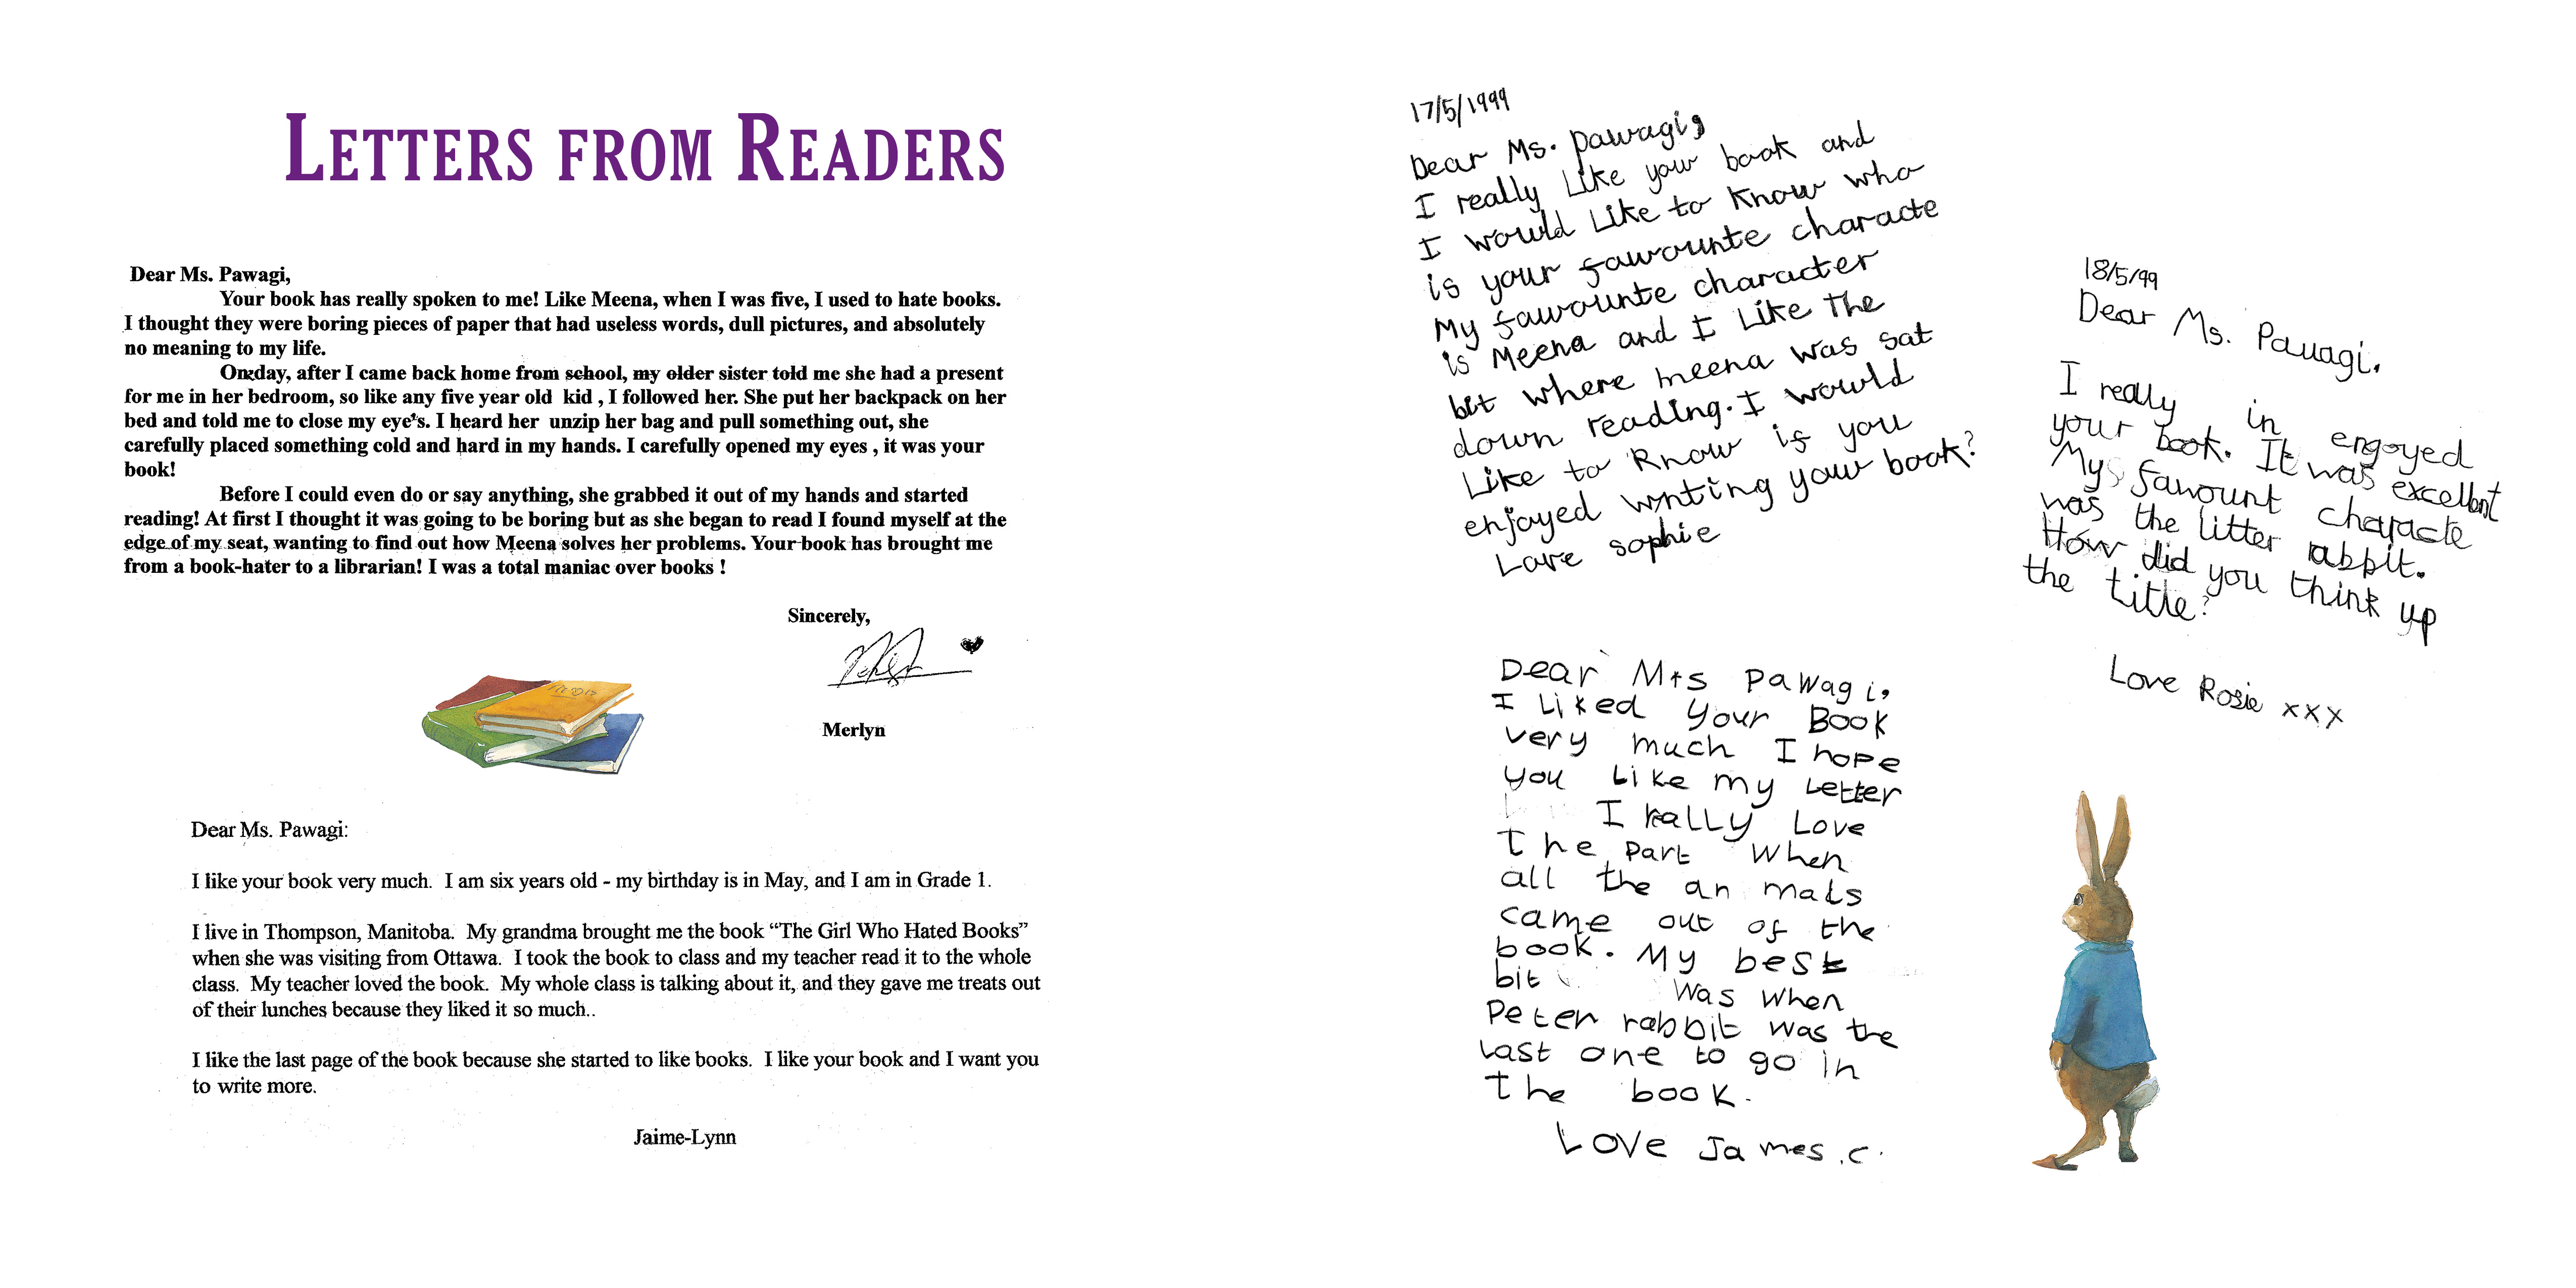 LETTERS FROM READERS
Dear Ms. Pawagi,
Your book has really spoken to me! Like Meena, when I was five, I used to hate books.
I thought they were boring pieces of paper that had useless words, dull pictures, and absolutely
no meaning to my life.
Oneday, after I came back home from school, my older sister told me she had a present
for me in her bedroom, so like any five year old kid , I followed her. She put her backpack on her
bed and told me to close my eye's. I heard her unzip her bag and pull something out, she
carefully placed something cold and hard in my hands. I carefully opened my eyes , it was your
book!
Before I could even do or say anything, she grabbed it out of my hands and started
reading! At first I thought it was going to be boring but as she began to read I found myself at the
edge of my seat, wanting to find out how Meena solves her problems. Your book has brought me
from a book-hater to a librarian! I was a total maniac over books !
Sincerely,
Merlyn
Dear Ms. Pawagi:
I like your book very much. I am six years old - my birthday is in May, and I am in Grade 1.
I live in Thompson, Manitoba. My grandma brought me the book “The Girl Who Hated Books”
when she was visiting from Ottawa. I took the book to class and my teacher read it to the whole
class. My teacher loved the book. My whole class is talking about it, and they gave me treats out
of their lunches because they liked it so much..
I like the last page of the book because she started to like books. I like your book and I want you
to write more.
Jaime-Lynn
17/5/1999
Dear Ms. pawagi,
I really Like your book and
I would Like to Know who
is your fawounte characte
My fawounte character
is Meena and I Like The
bit where meena was sat
down reading. I would
Like to Know is you
enjoyed wnting your book?
Love sophie
18/5/99
Dear Ms. Pawagi.
I really in engoyed
your book. It was excellent
My fawount characte
was the litter rabbit.
How did you think up
the title?
Love Rosie xxx
Dear Mrs Pawagi,
I Liked Your Book
very much I hope
you Like my Letter
I really Love
The Part When
all the an mals
came out of the
book. My best
bit was when
Peter rabbit was the
last one to go in
the book.
Love James.c.